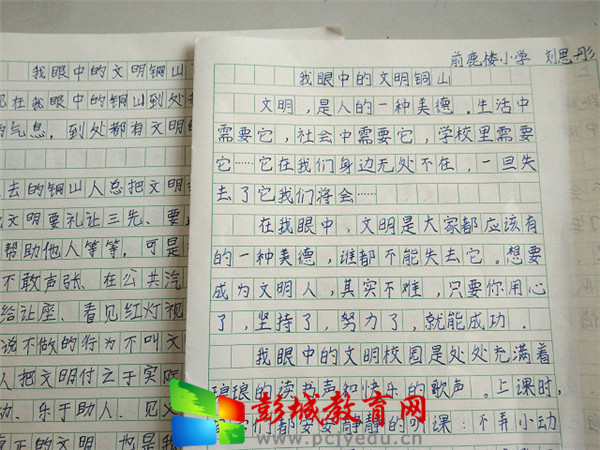 我眼中的文明铜山
在我眼中的铜山到处
气息,到处都有文明的
去的铜山人总把文明
文明要礼让三先、要
帮助他人等等,可是
不敢声张、在公共汽
给让座、看见红灯视
说不做的行为不叫文
人把文明付之于实际
动、乐于助人、见义
真正的文明,也是我
前鹿楼小学 刘思彤
我眼中的文明铜山
文明,是人的一种美德。生活中
需要它,社会中需要它,学校里需要
它……它在我们身边无处不在,一旦失
去了它我们将会……
在我眼中,文明是大家都应该有
的一种美德,谁都不能失去它。想要
成为文明人,其实不难,只要你用心
了,坚持了,努力了,就能成功.
我眼中的文明校园是处处充满着
琅琅的读书声和快乐的歌声。上课时,
们都安安静静的听课:不弄小动
彭城教育网
www.pcjyedu.cn